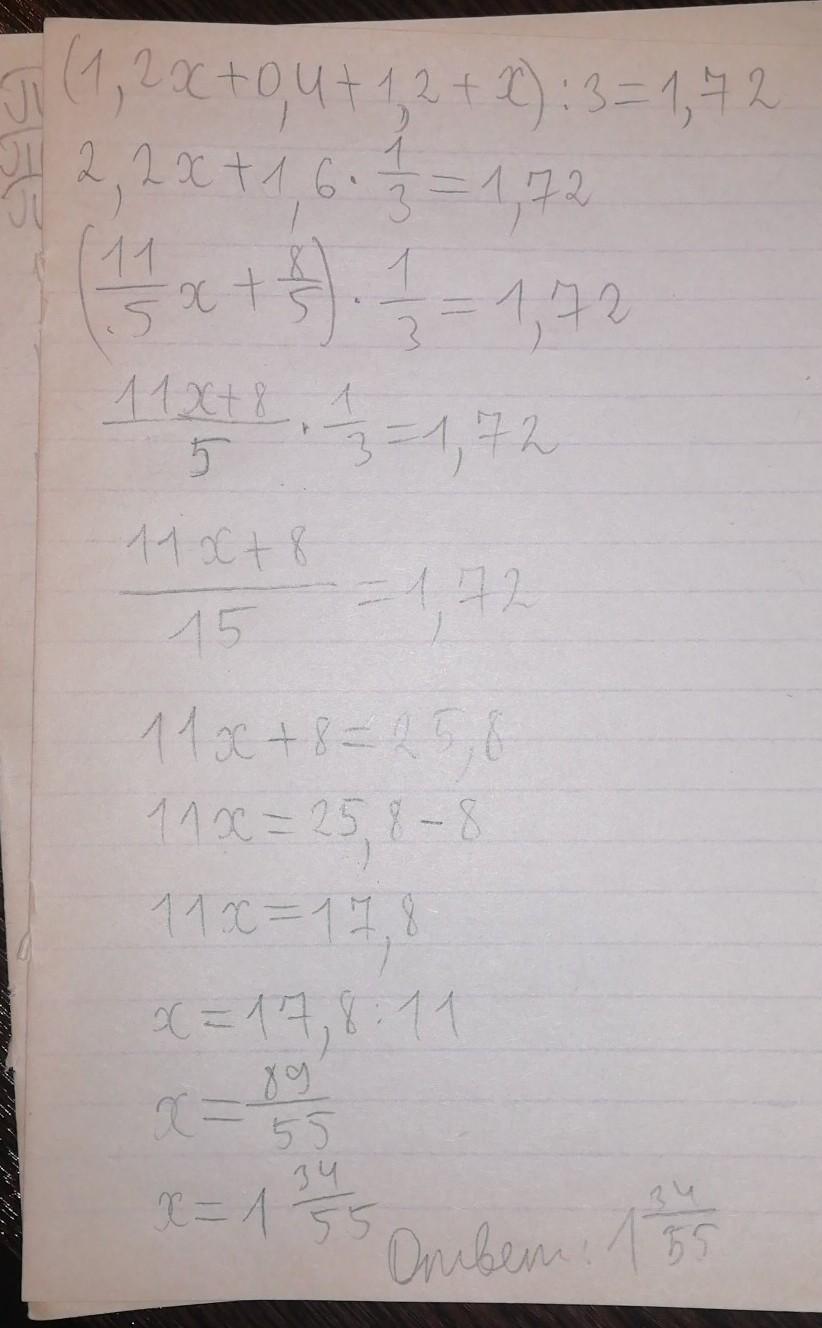 (1,2x+0,4+1,2+x):3=1,72
2,2x+1,6·1/3=1,72
(11/5x+8/5)·1/3=1,72
11x+8/5·1/3=1,72
11x+8/15=1,72
11x+8=25,8
11x=25,8-8
11x=17,8
x=17,8:11
x=89/55
x=1 34/55
Ответ: 1 34/55